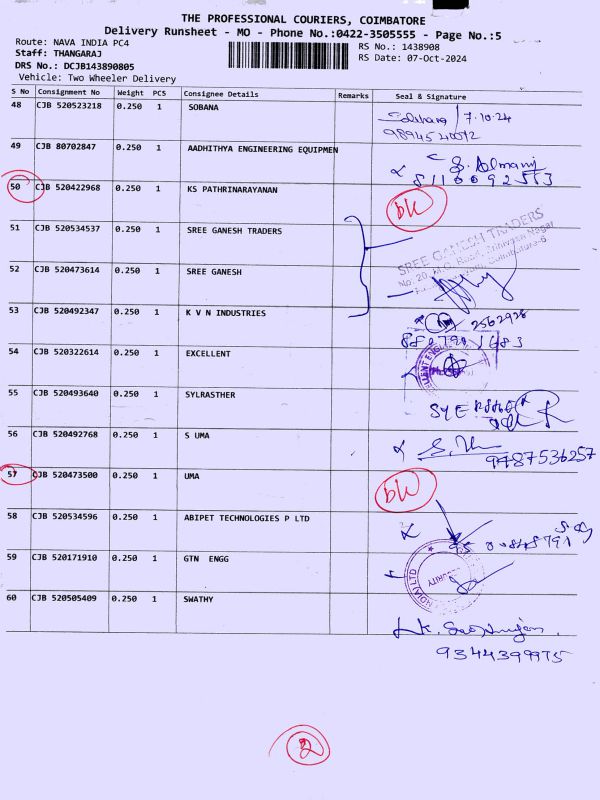 THE PROFESSIONAL COURIERS, COIMBATORE
Delivery Runsheet - MO - Phone No.:0422-3505555 - Page No.:5
Route: NAVA INDIA PC4
Staff: THANGARAJ
DRS No.: DCJB143890805
Vehicle: Two Wheeler Delivery
RS No.: 1438908
RS Date: 07-Oct-2024
S No Consignment No Weight PCS Consignee Details Remarks Seal & Signature
48 CJB 520523218 0.250 1 SOBANA
7.10.24
9894540072
49 CJB 80702847 0.250 1 AADHITHYA ENGINEERING EQUIPMEN
50 CJB 520422968 0.250 1 KS PATHRINARAYANAN
51 CJB 520534537 0.250 1 SREE GANESH TRADERS
SREE GANESH TRADERS
52 CJB 520473614 0.250 1 SREE GANESH
53 CJB 520492347 0.250 1 K V N INDUSTRIES
2562928
54 CJB 520322614 0.250 1 EXCELLENT
55 CJB 520493640 0.250 1 SYLRASTHER
56 CJB 520492768 0.250 1 S UMA
9487536257
57 CJB 520473500 0.250 1 UMA
58 CJB 520534596 0.250 1 ABIPET TECHNOLOGIES P LTD
59 CJB 520171910 0.250 1 GTN ENGG
60 CJB 520505409 0.250 1 SWATHY
9344399975
2